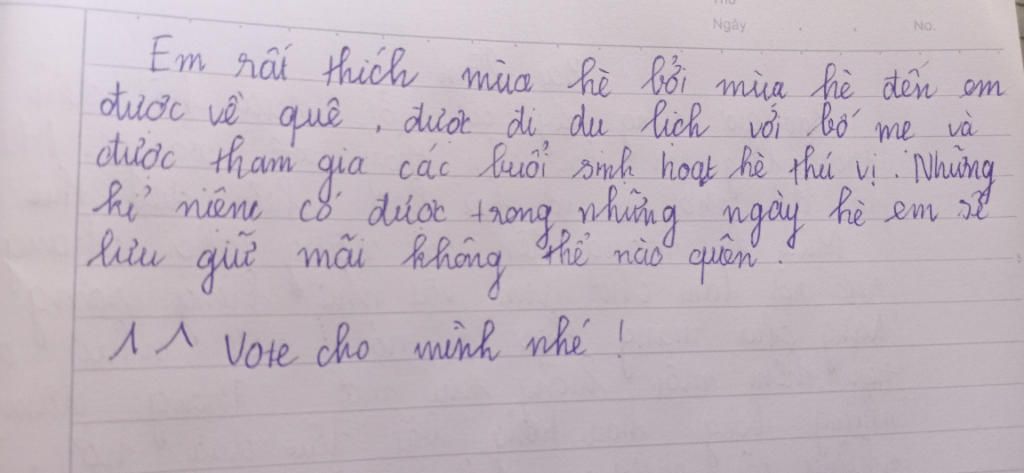 Thứ
Ngày . . No.
Em rất thích mùa hè bởi mùa hè đến em
được về quê, được đi du lịch với bố mẹ và
được tham gia các buổi sinh hoạt hè thú vị. Những
kỉ niệm có được trong những ngày hè em sẽ
lưu giữ mãi không thể nào quên.
^ ^ Vote cho mình nhé !